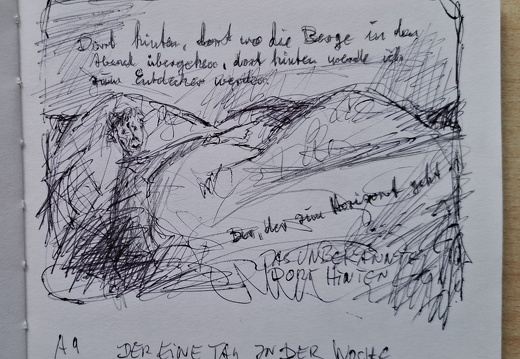 Dort hinten, dort wo die Berge in den
Abend übergehen, dort hinten werde ich
zum Entdecker werden.
die
wo
Stille
Der, der zum Horizont geht
DAS UNBEKANNTE
DORT HINTEN
A9 DER EINE TAG IN DER WOCHE